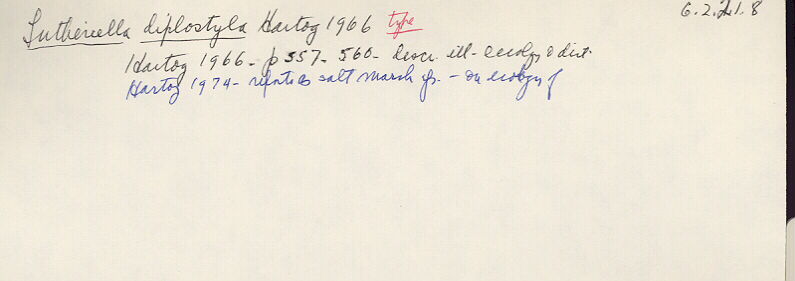 Sutheriella diplostyla Hartog 1966 type 6.2.21.8
Hartog 1966 - p 557 - 560 - Descr. ill - ecology & dist.
Hartog 1974 - salt marsh sp. - on ecology of